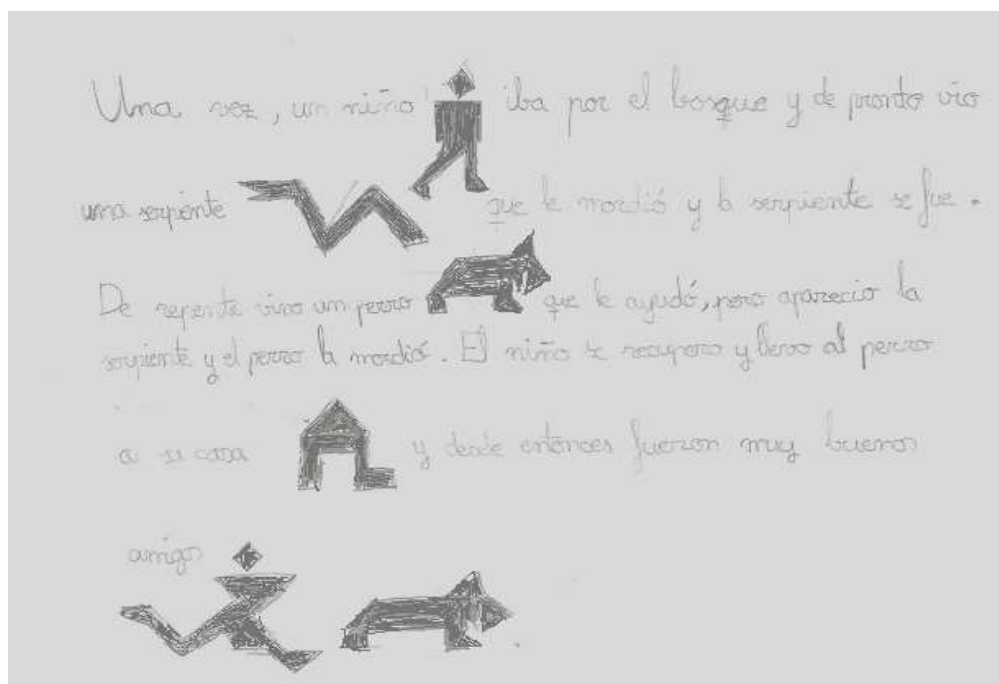 Una vez, un niño iba por el bosque y de pronto vio
una serpiente que le mordió y la serpiente se fue.
De repente vino un perro que le ayudó, pero apareció la
serpiente y el perro la mordió. El niño se recupero y llevo al perro
a su casa y desde entonces fueron muy buenos
amigos .